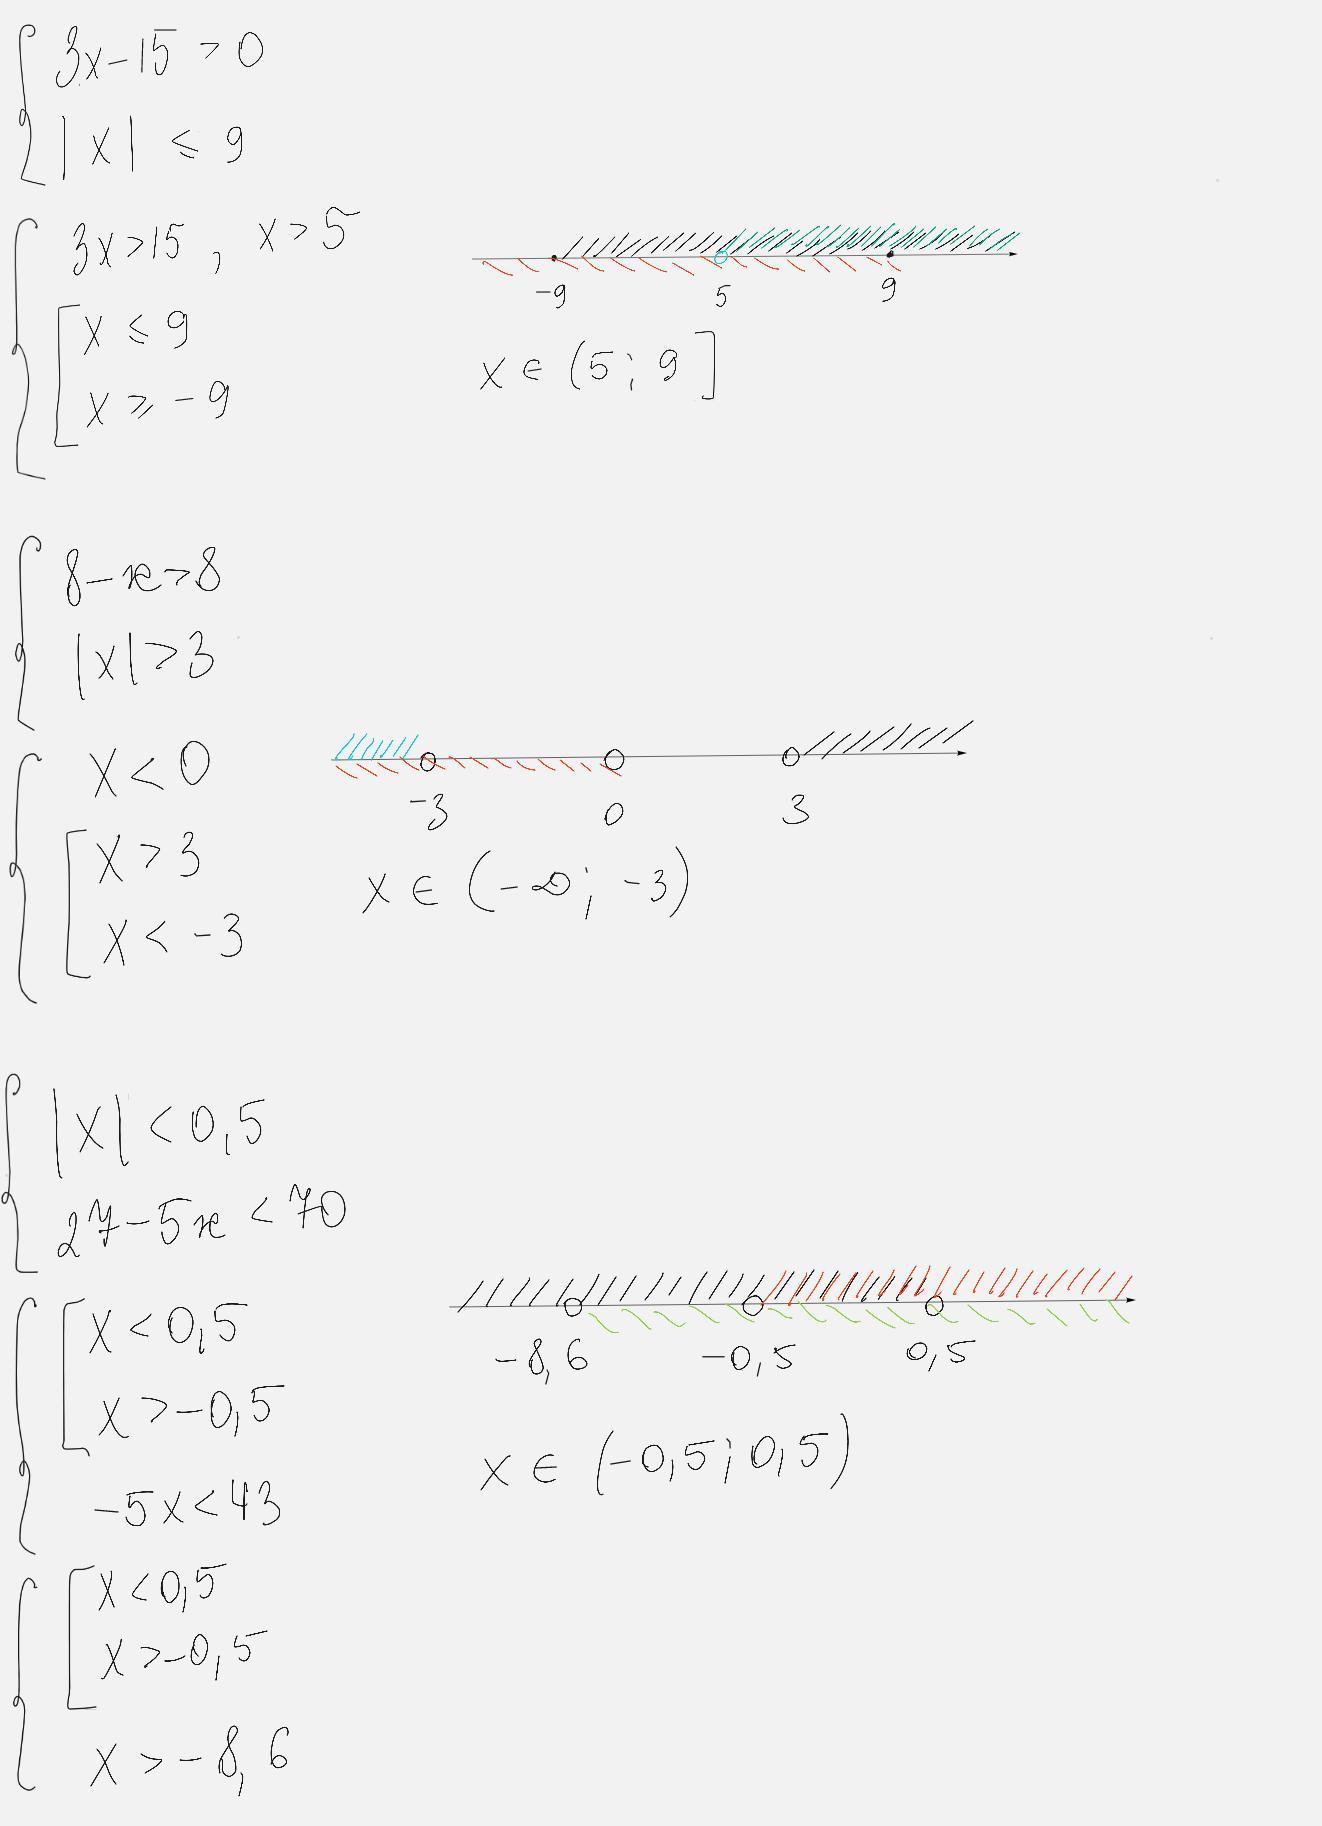 3x-15 > 0
|x| ⩽ 9
3x>15, x>5
x ⩽ 9
x ⩾ -9
-9 5 9
x ∈ (5; 9]
8-x>8
|x|>3
x<0
x>3
x<-3
-3 0 3
x ∈ (-∞; -3)
|x|<0,5
27-5x<70
x<0,5
x>-0,5
-5x<43
x<0,5
x>-0,5
x>-8,6
-8,6 -0,5 0,5
x ∈ (-0,5; 0,5)